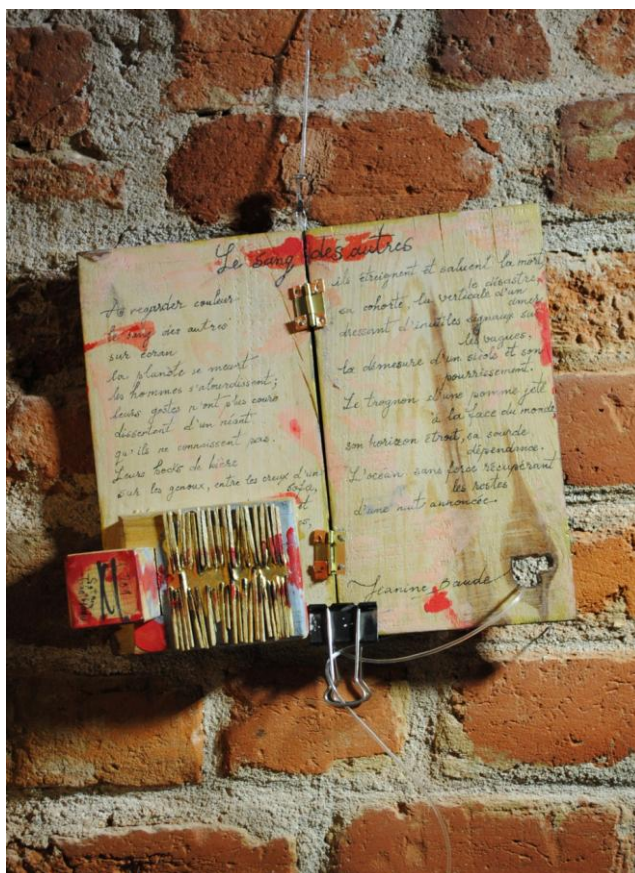 Le sang des autres
A regarder couleur
le sang des autres
sur écran
la planète se meurt
les hommes s'alourdissent;
leurs gestes n'ont plus cours
dissertent d'un néant
qu'ils ne connaissent pas.
Leurs bocks de bière
sur les genoux, entre les creux d'un
sofa,
ils étreignent et saluent la mort
le désastre
sa cohorte, la verticale d'un
dressant d'inutiles signaux sur
les vagues,
la démesure d'un et son
pourrissement.
Le trognon d'une pomme jeté
à la face du monde
son horizon étroit, sa sourde
dépendance.
L'océan sans force récupérant
les restes
d'une nuit annoncée.
Jeanine Baude